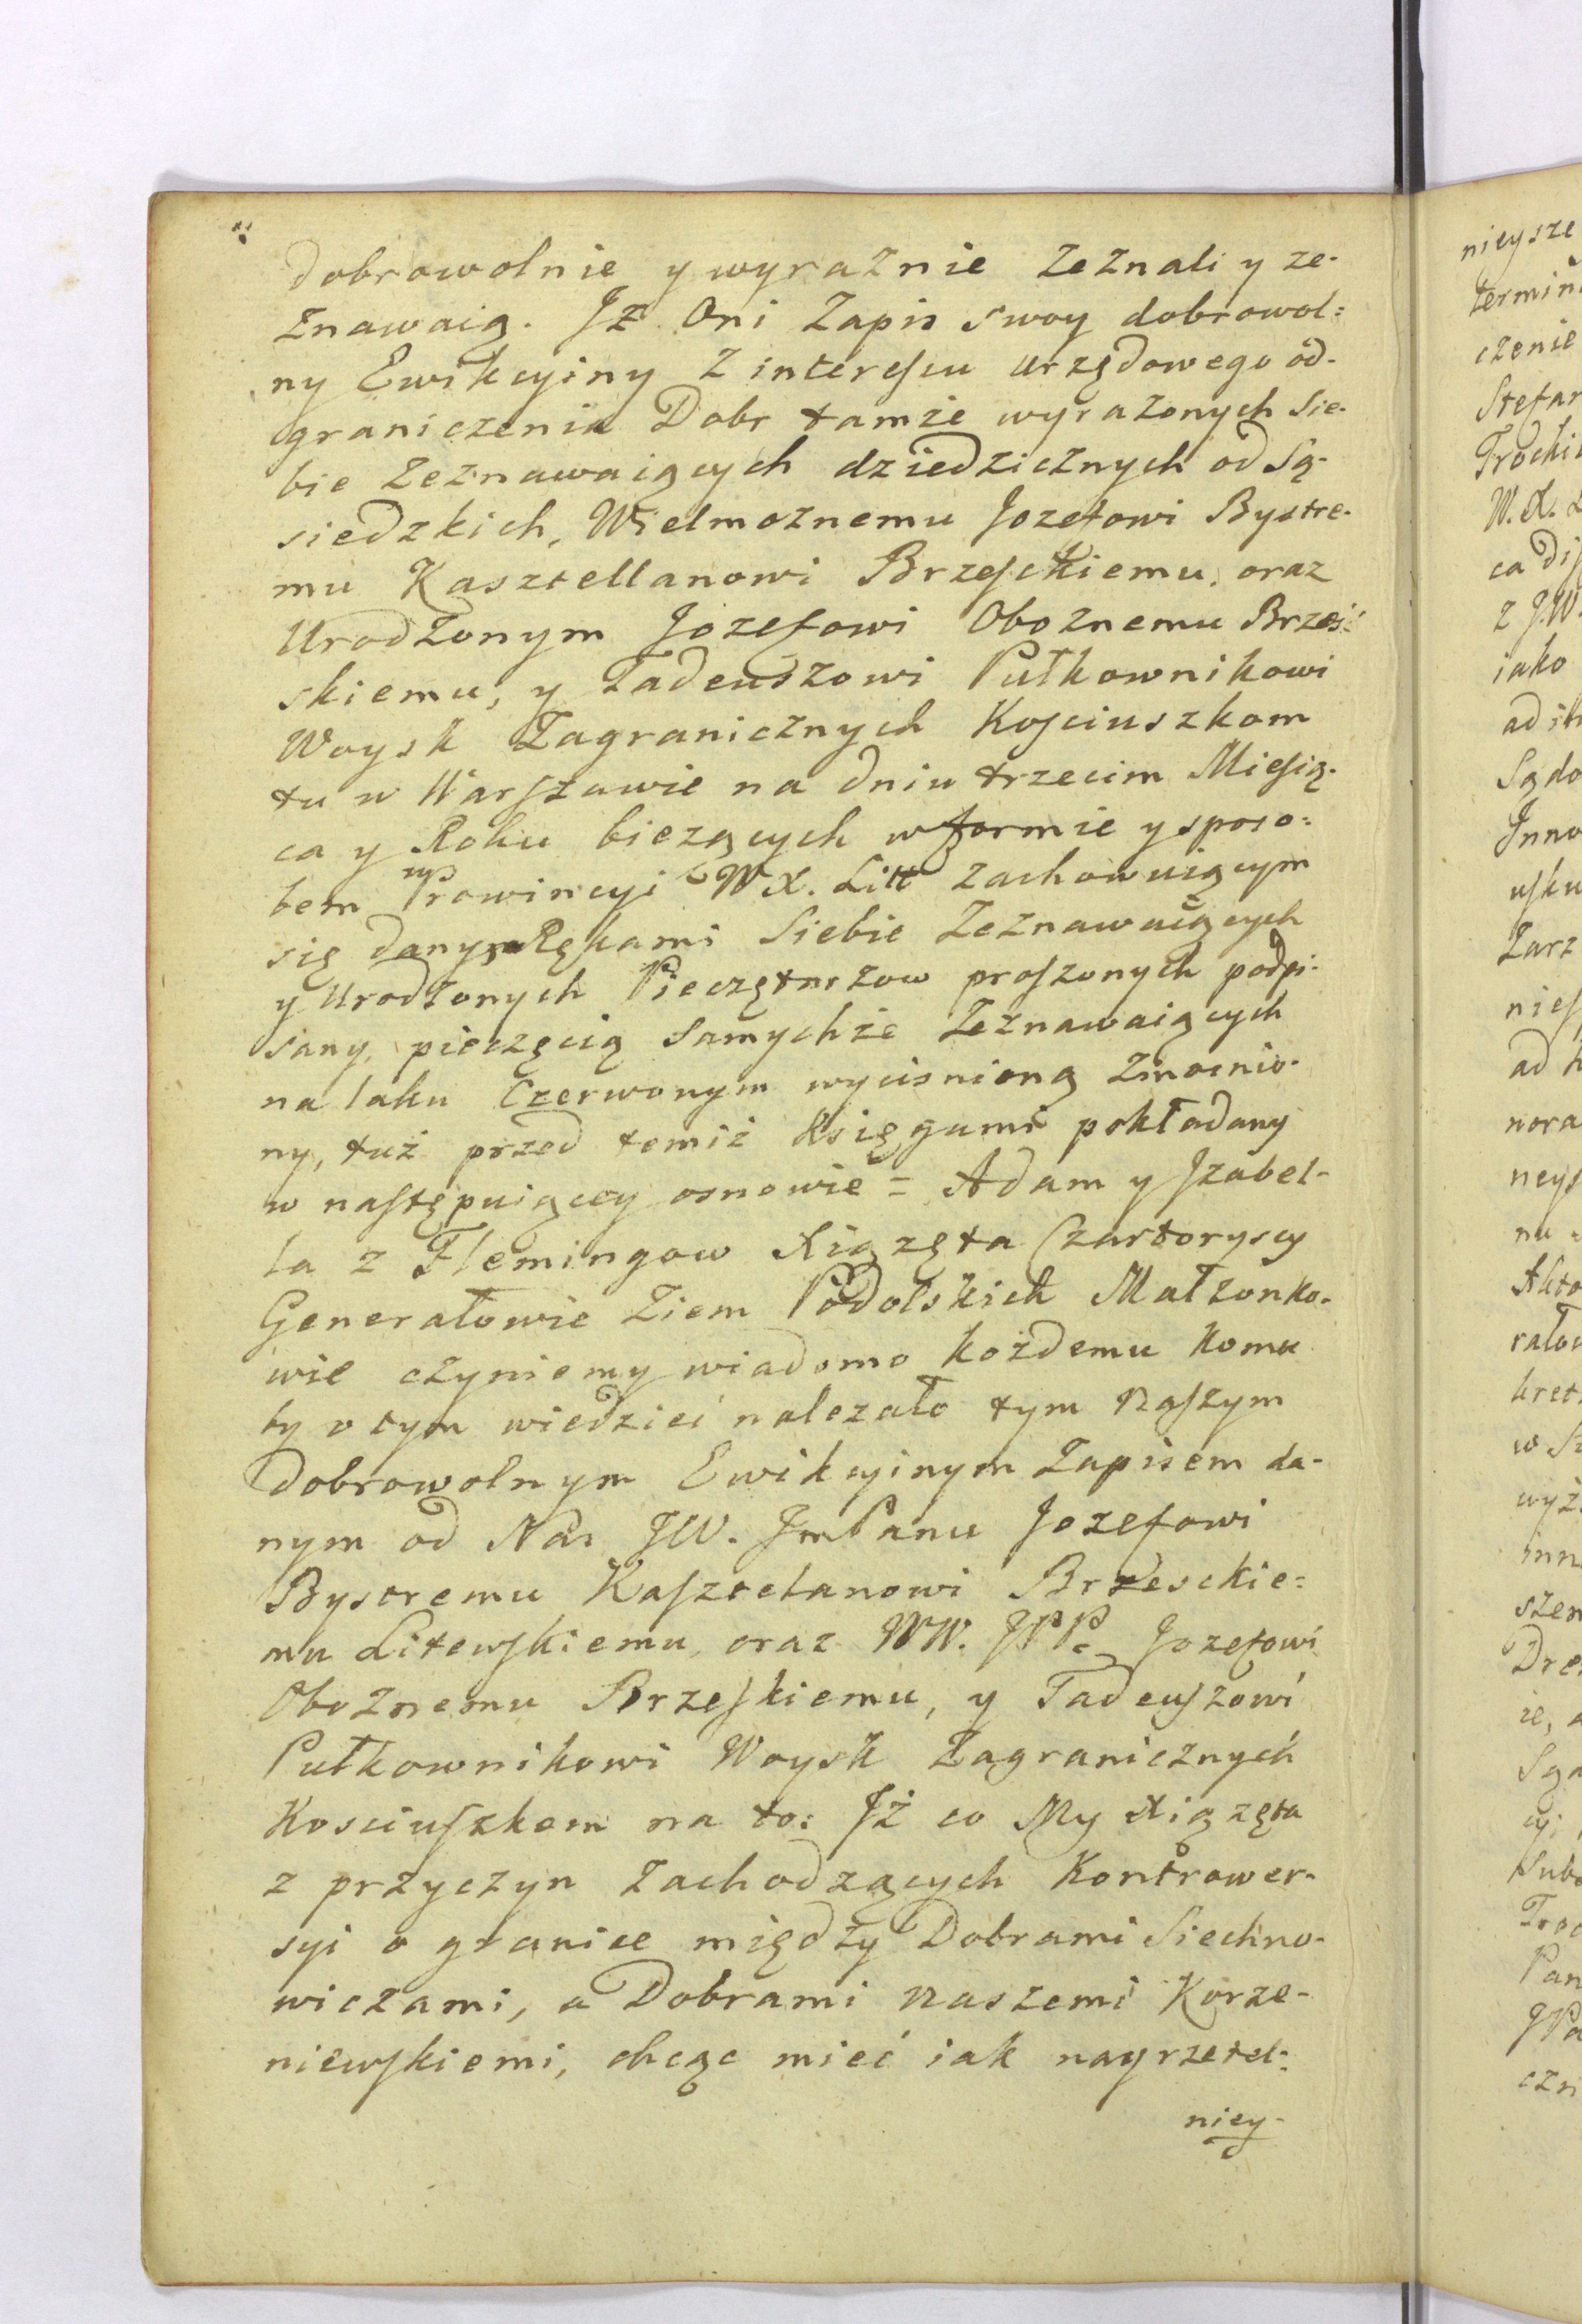 dobrowolnie y wyraznie zeznali y ze-
znawaią. Iż Oni Zapis swoy dobrowol=
ny Ewikcyiny z interessu urzędowego od-
graniczenia Dobr tamże wyrażonych Sie-
bie zeznawaiących dziedzicznych od Są-
siedzkich, Wielmoznemu Jozefowi Bystre-
mu Kasztellanowi Brzesckiemu, oraz
Urodzonym Jozefowi Oboznemu Brześ=
skiemu, y Tadeuszowi Pułkownikowi
Woysk Zagranicznych Kosciuszkom
tu w Warszawie na dniu trzecim Miesią-
ca y Roku bieżących w formie y sposo=
bem w Prowincyi W X. Litt zachowuiącym
się dany Rękami Siebie Zeznawaiących
y Urodzonych Pieczętarzow proszonych podpi-
sany, pieczęcią Samychże Zeznawaiących
na laku Czerwonym wycisnioną Zmocnio-
ny, tuż przed temiż Księgami pokładany
w następuiącey osnowie = Adam y Izabel-
la z Flemingow Xiązęta Czartoryscy
Generałowie Ziem Podolskich Małżonko-
wie czyniemy wiadomo każdemu komu
by o tym wiedzieć nalezało tym Naszym
Dobrowolnym Ewikcyinym Zapisem da-
nym od Nas JW. JmPanu Jozefowi
Bystremu Kasztelanowi Brzesckie=
mu Litewskiemu, oraz WW. JPP. Jozefowi
Oboznemu Brzeskiemu, y Tadeuszowi
Pułkownikowi Woysk Zagranicznych
Kosciuszkom na to: Iż co My Xiązęta
z przyczyn zachodzących Kontrower-
syi o granice między Dobrami Siechno-
wiczami, a Dobrami Naszemi Korze-
niewskiemi, chcąc mieć iak nayrzetel=
niey-
nieysze
termin
czenie
Stefan
Trocki
W. X. L
ca
z J.W.
iako
ad
Sądo
Inno
usku
Zarz
nies
ad
nora
ney
na
Akto
rało
kret
w
wyż
inn
szem
Dre
ie, a
Sąd
cyi
Subo
Troc
Pan
JPa
czn